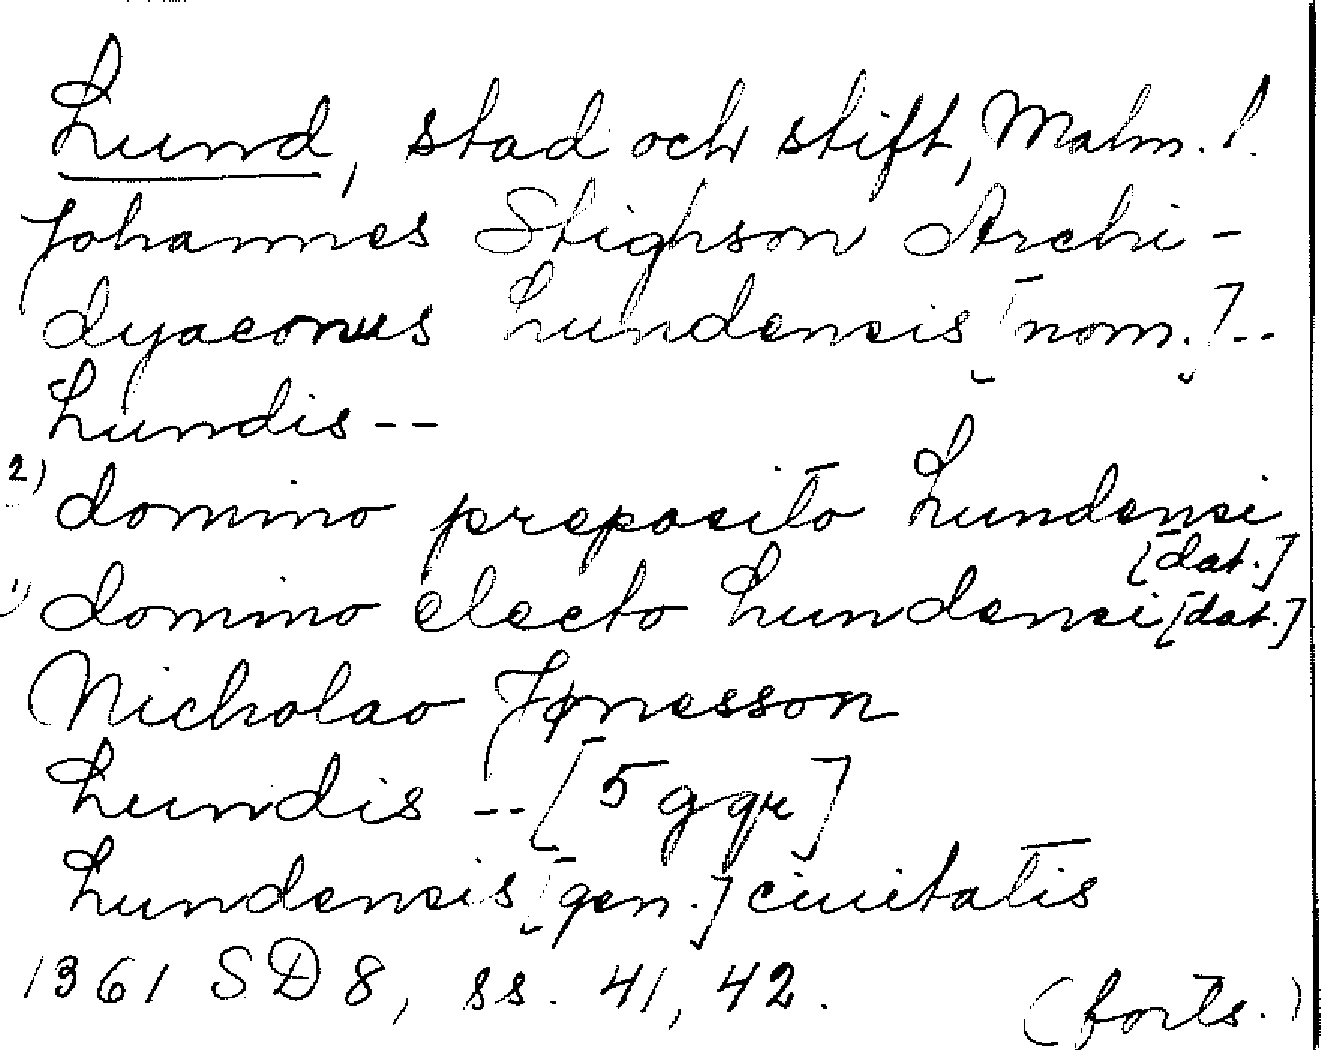 Lund, stad och stift, Malm. l.
Johannes Stighson Archi-
dyaconus Lundensis [nom.] --
Lundis --
2) domino preposito Lundensi
[dat.]
1) domino electo Lundensi [dat.]
Nicholao Jønesson
Lundis -- [5 ggr]
Lundensis [gen.] ciuitatis
1361 SD 8, ss. 41, 42.
(forts.)